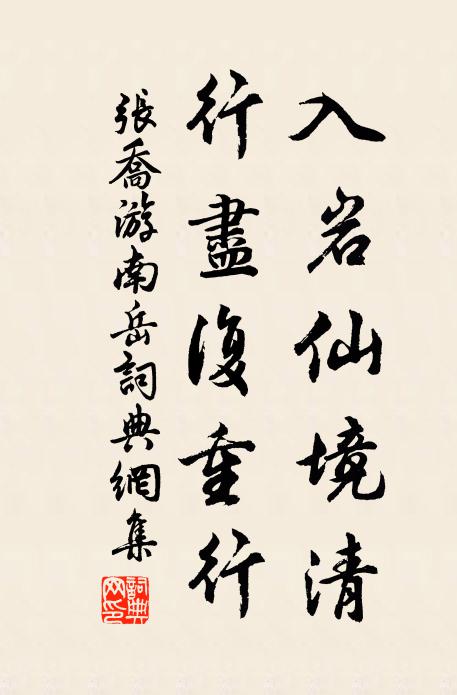 入岩仙境清
行盡復重行
張喬游南岳詞典網集
詞典
网印